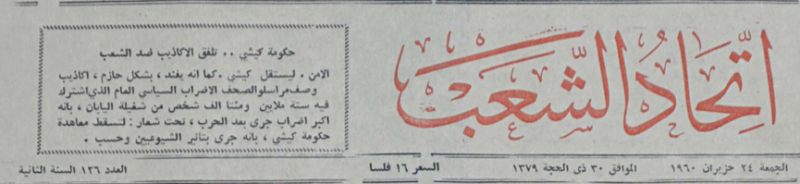 اتحاد الشعب
حكومة كيشي .. تلفق الاكاذيب ضد الشعب
الامن . ليستقل كيشي . كما انه يفند ، بشكل حازم ، اكاذيب
وصف مراسلو الصحف الاضراب السياسي العام الذي اشترك
فيه ستة ملايين ومئتا الف شخص من شغيلة اليابان ، بانه
اكبر اضراب جرى بعد الحرب ، تحت شعار : لتسقط معاهدة
حكومة كيشي ، بانه جرى بتاثير الشيوعيين وحسب .
الجمعة ٢٤ حزيران ١٩٦٠ الموافق ٣٠ ذي الحجة ١٣٧٩ السعر ١٦ فلسا العدد ١٢٦ السنة الثانية